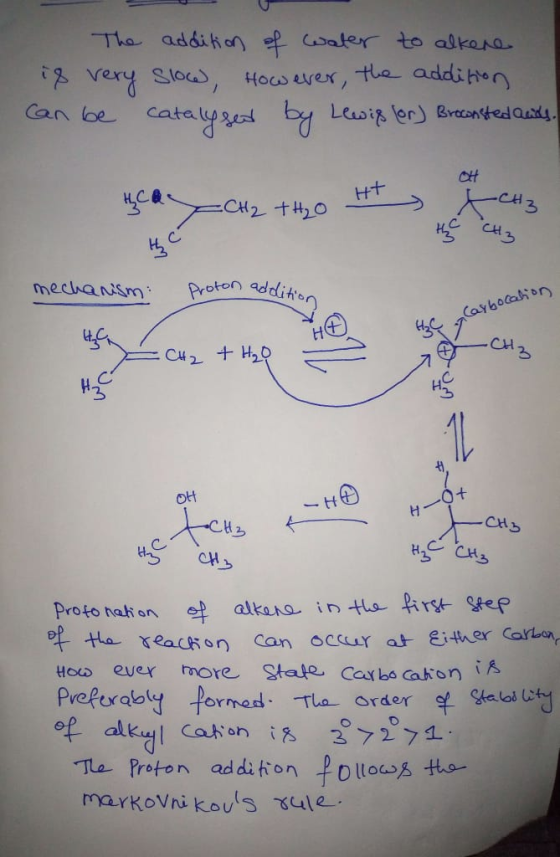 The addition of water to alkene
is very slow, However, the addition
can be catalysed by Lewis (or) Bronsted acids.
OH
H3C
=CH2 + H2O
H+
CH3
H3C
H3C
CH3
mechanism:
Proton addition
H⊕
Carbocation
H3C
=CH2 + H2O
H3C
H3C
⊕
CH3
H3C
H
H-O+
CH3
H3C
CH3
OH
-H⊕
CH3
H3C
CH3
Protonation of alkene in the first step
of the reaction can occur at Either Carbon,
How ever more State Carbocation is
Preferably formed. The order of Stability
of alkyl Cation is 3°>2°>1.
The Proton addition follows the
markovnikov's rule.